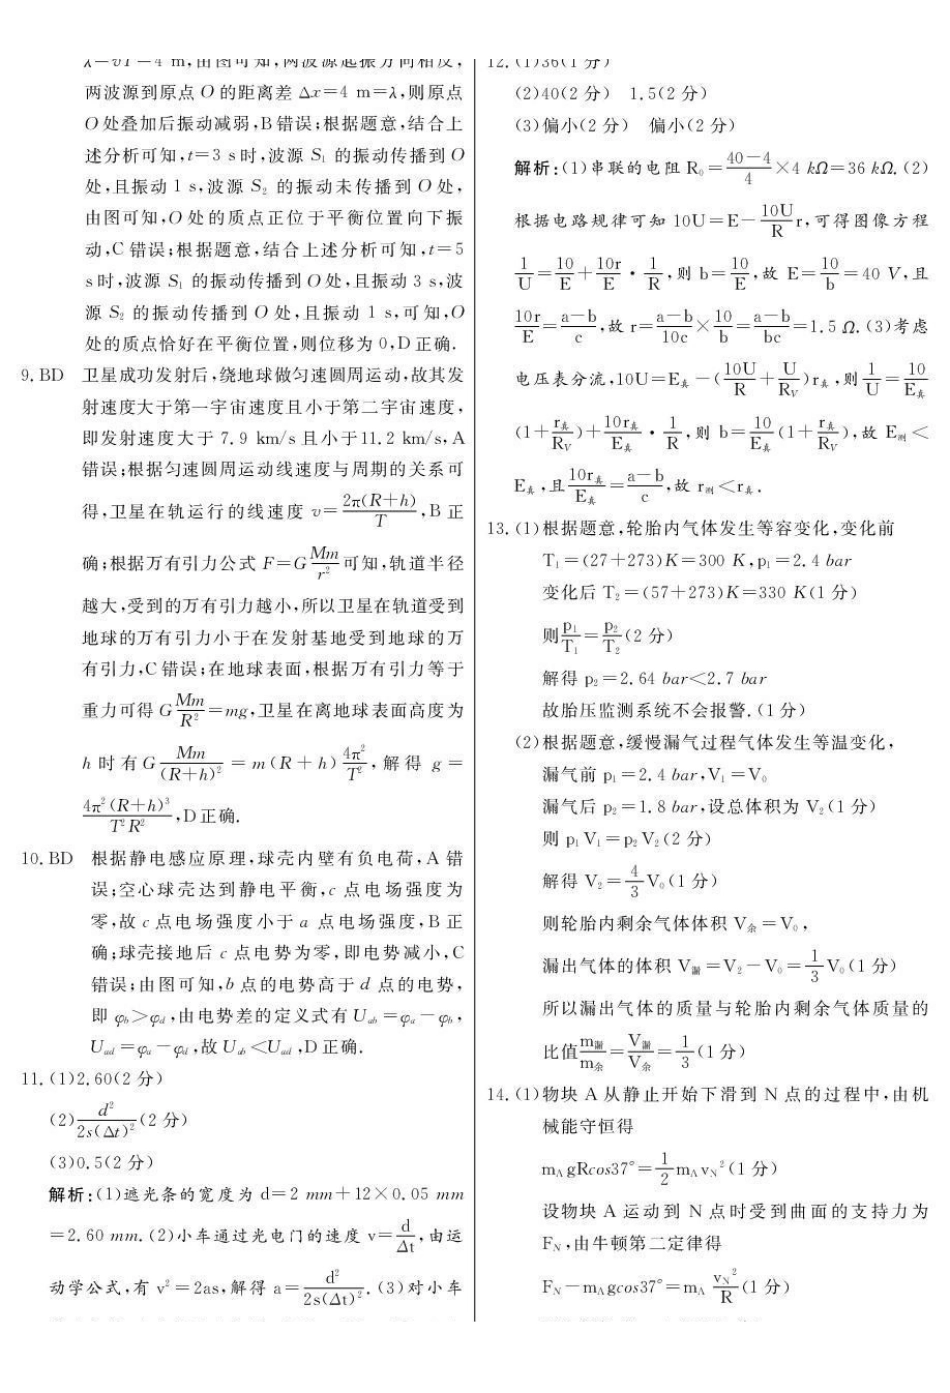 λ=vT=4 m,由图可知,两波源起振方向相反,
两波源到原点 O 的距离差 Δx=4 m=λ,则原点
O 处叠加后振动减弱,B 错误;根据题意,结合上
述分析可知,t=3 s 时,波源 S₁ 的振动传播到 O
处,且振动 1 s,波源 S₂ 的振动未传播到 O 处,
由图可知,O 处的质点正位于平衡位置向下振
动,C 错误;根据题意,结合上述分析可知,t=5
s 时,波源 S₁ 的振动传播到 O 处,且振动 3 s,波
源 S₂ 的振动传播到 O 处,且振动 1 s,可知,O
处的质点恰好在平衡位置,则位移为 0,D 正确.
9. BD 卫星成功发射后,绕地球做匀速圆周运动,故其发
射速度大于第一宇宙速度且小于第二宇宙速度,
即发射速度大于 7.9 km/s 且小于11.2 km/s,A
错误;根据匀速圆周运动线速度与周期的关系可
得,卫星在轨运行的线速度 v=2π(R+h)/T,B 正
确;根据万有引力公式 F=G Mm/r² 可知,轨道半径
越大,受到的万有引力越小,所以卫星在轨道受到
地球的万有引力小于在发射基地受到地球的万
有引力,C 错误;在地球表面,根据万有引力等于
重力可得 G Mm/R²=mg,卫星在离地球表面高度为
h 时有 G Mm/(R+h)²=m(R+h)4π²/T²,解得 g=
4π²(R+h)³/T²R²,D 正确.
10. BD 根据静电感应原理,球壳内壁有负电荷,A 错
误;空心球壳达到静电平衡,c 点电场强度为
零,故 c 点电场强度小于 a 点电场强度,B 正
确;球壳接地后 c 点电势为零,即电势减小,C
错误;由图可知,b 点的电势高于 d 点的电势,
即 φb>φd,由电势差的定义式有 Uab=φa-φb,
Uad=φa-φd,故 Uab<Uad,D 正确.
11. (1)2.60(2 分)
(2)d²/2s(Δt)²(2 分)
(3)0.5(2 分)
解析:(1)遮光条的宽度为 d=2 mm+12×0.05 mm
=2.60 mm.(2)小车通过光电门的速度 v=d/Δt,由运
动学公式,有 v²=2as,解得 a=d²/2s(Δt)².(3)对小车
12. (1)36(1 分)
(2)40(2 分) 1.5(2 分)
(3)偏小(2 分) 偏小(2 分)
解析:(1)串联的电阻 R₀=(40-4)/4×4 kΩ=36 kΩ.(2)
根据电路规律可知 10U=E-10U/R r,可得图像方程
1/U=10/E+10r/E·1/R,则 b=10/E,故 E=10/b=40 V,且
10r/E=(a-b)/c,故 r=(a-b)/10c×10/b=(a-b)/bc=1.5 Ω.(3)考虑
电压表分流,10U=E真-(10U/R+U/RV)r真,则1/U=10/E真
(1+r真/RV)+10r真/E真·1/R,则 b=10/E真(1+r真/RV),故 E测<
E真,且10r真/E真=(a-b)/c,故 r测<r真.
13. (1)根据题意,轮胎内气体发生等容变化,变化前
T₁=(27+273)K=300 K,p₁=2.4 bar
变化后 T₂=(57+273)K=330 K(1 分)
则p₁/T₁=p₂/T₂(2 分)
解得 p₂=2.64 bar<2.7 bar
故胎压监测系统不会报警.(1 分)
(2)根据题意,缓慢漏气过程气体发生等温变化,
漏气前 p₁=2.4 bar,V₁=V₀
漏气后 p₂=1.8 bar,设总体积为 V₂(1 分)
则 p₁V₁=p₂V₂(2 分)
解得 V₂=4/3 V₀(1 分)
则轮胎内剩余气体体积 V余=V₀,
漏出气体的体积 V漏=V₂-V₀=1/3 V₀(1 分)
所以漏出气体的质量与轮胎内剩余气体质量的
比值m漏/m余=V漏/V余=1/3(1 分)
14. (1)物块 A 从静止开始下滑到 N 点的过程中,由机
械能守恒得
mAgRcos37°=1/2 mAvN²(1 分)
设物块 A 运动到 N 点时受到曲面的支持力为
FN,由牛顿第二定律得
FN-mAgcos37°=mA vN²/R(1 分)